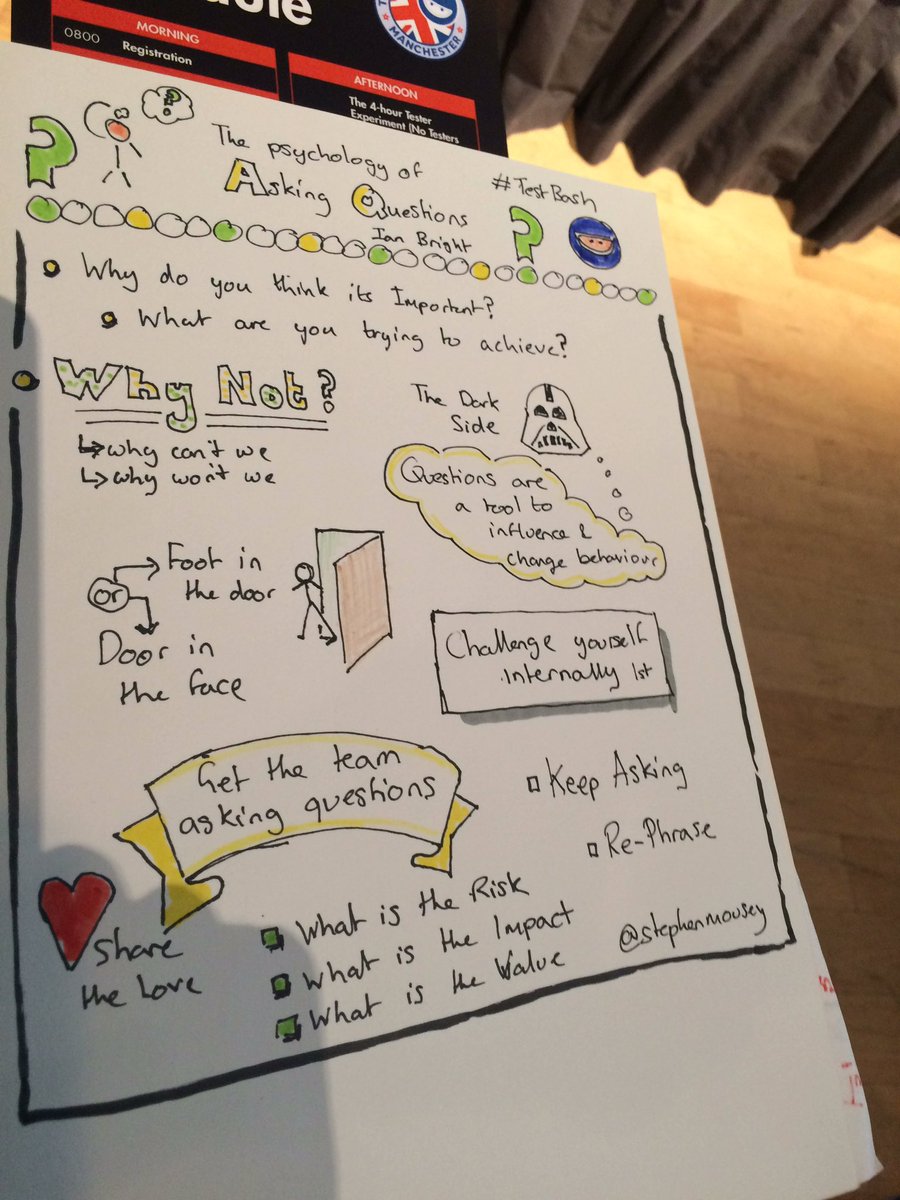 MORNING
0800 Registration
AFTERNOON
The 4-hour Tester
Experiment (No Testers
MANCHESTER
?
The psychology of
Asking Questions
Ian Bright
#TestBash
?
Why do you think its Important?
What are you trying to achieve?
Why Not?
why can't we
why won't we
The Dark
Side
Questions are
a tool to
influence &
change behaviour
or
Foot in
the door
Door in
the face
Challenge yourself
internally 1st
Get the team
asking questions
Keep Asking
Re-Phrase
Share
the Love
What is the Risk
What is the Impact
What is the Value
@stephenmousey